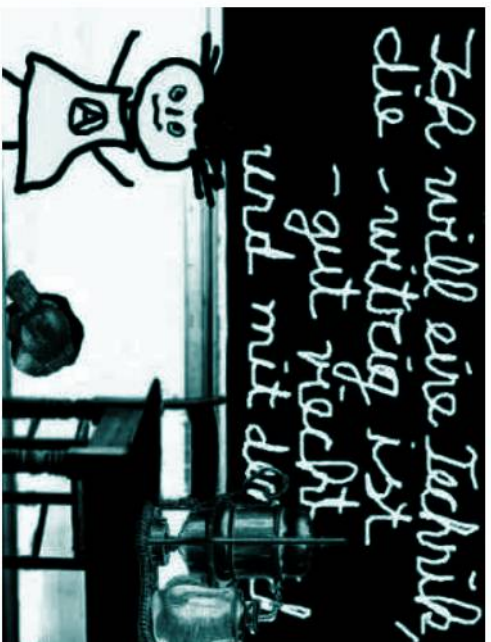 Ich will eine Technik,
die - witzig ist
- gut riecht
und mit der
A